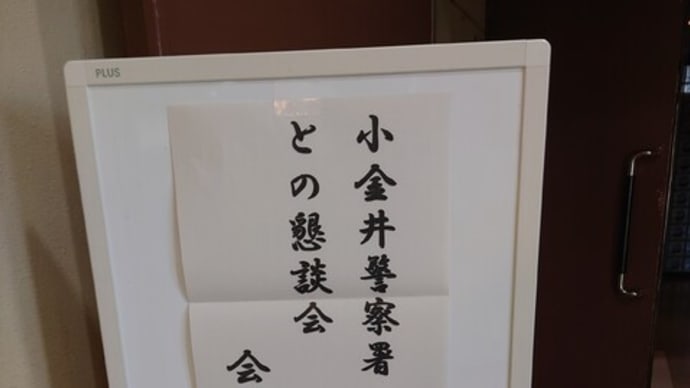 PLUS
小金井警察署
との懇談会
会